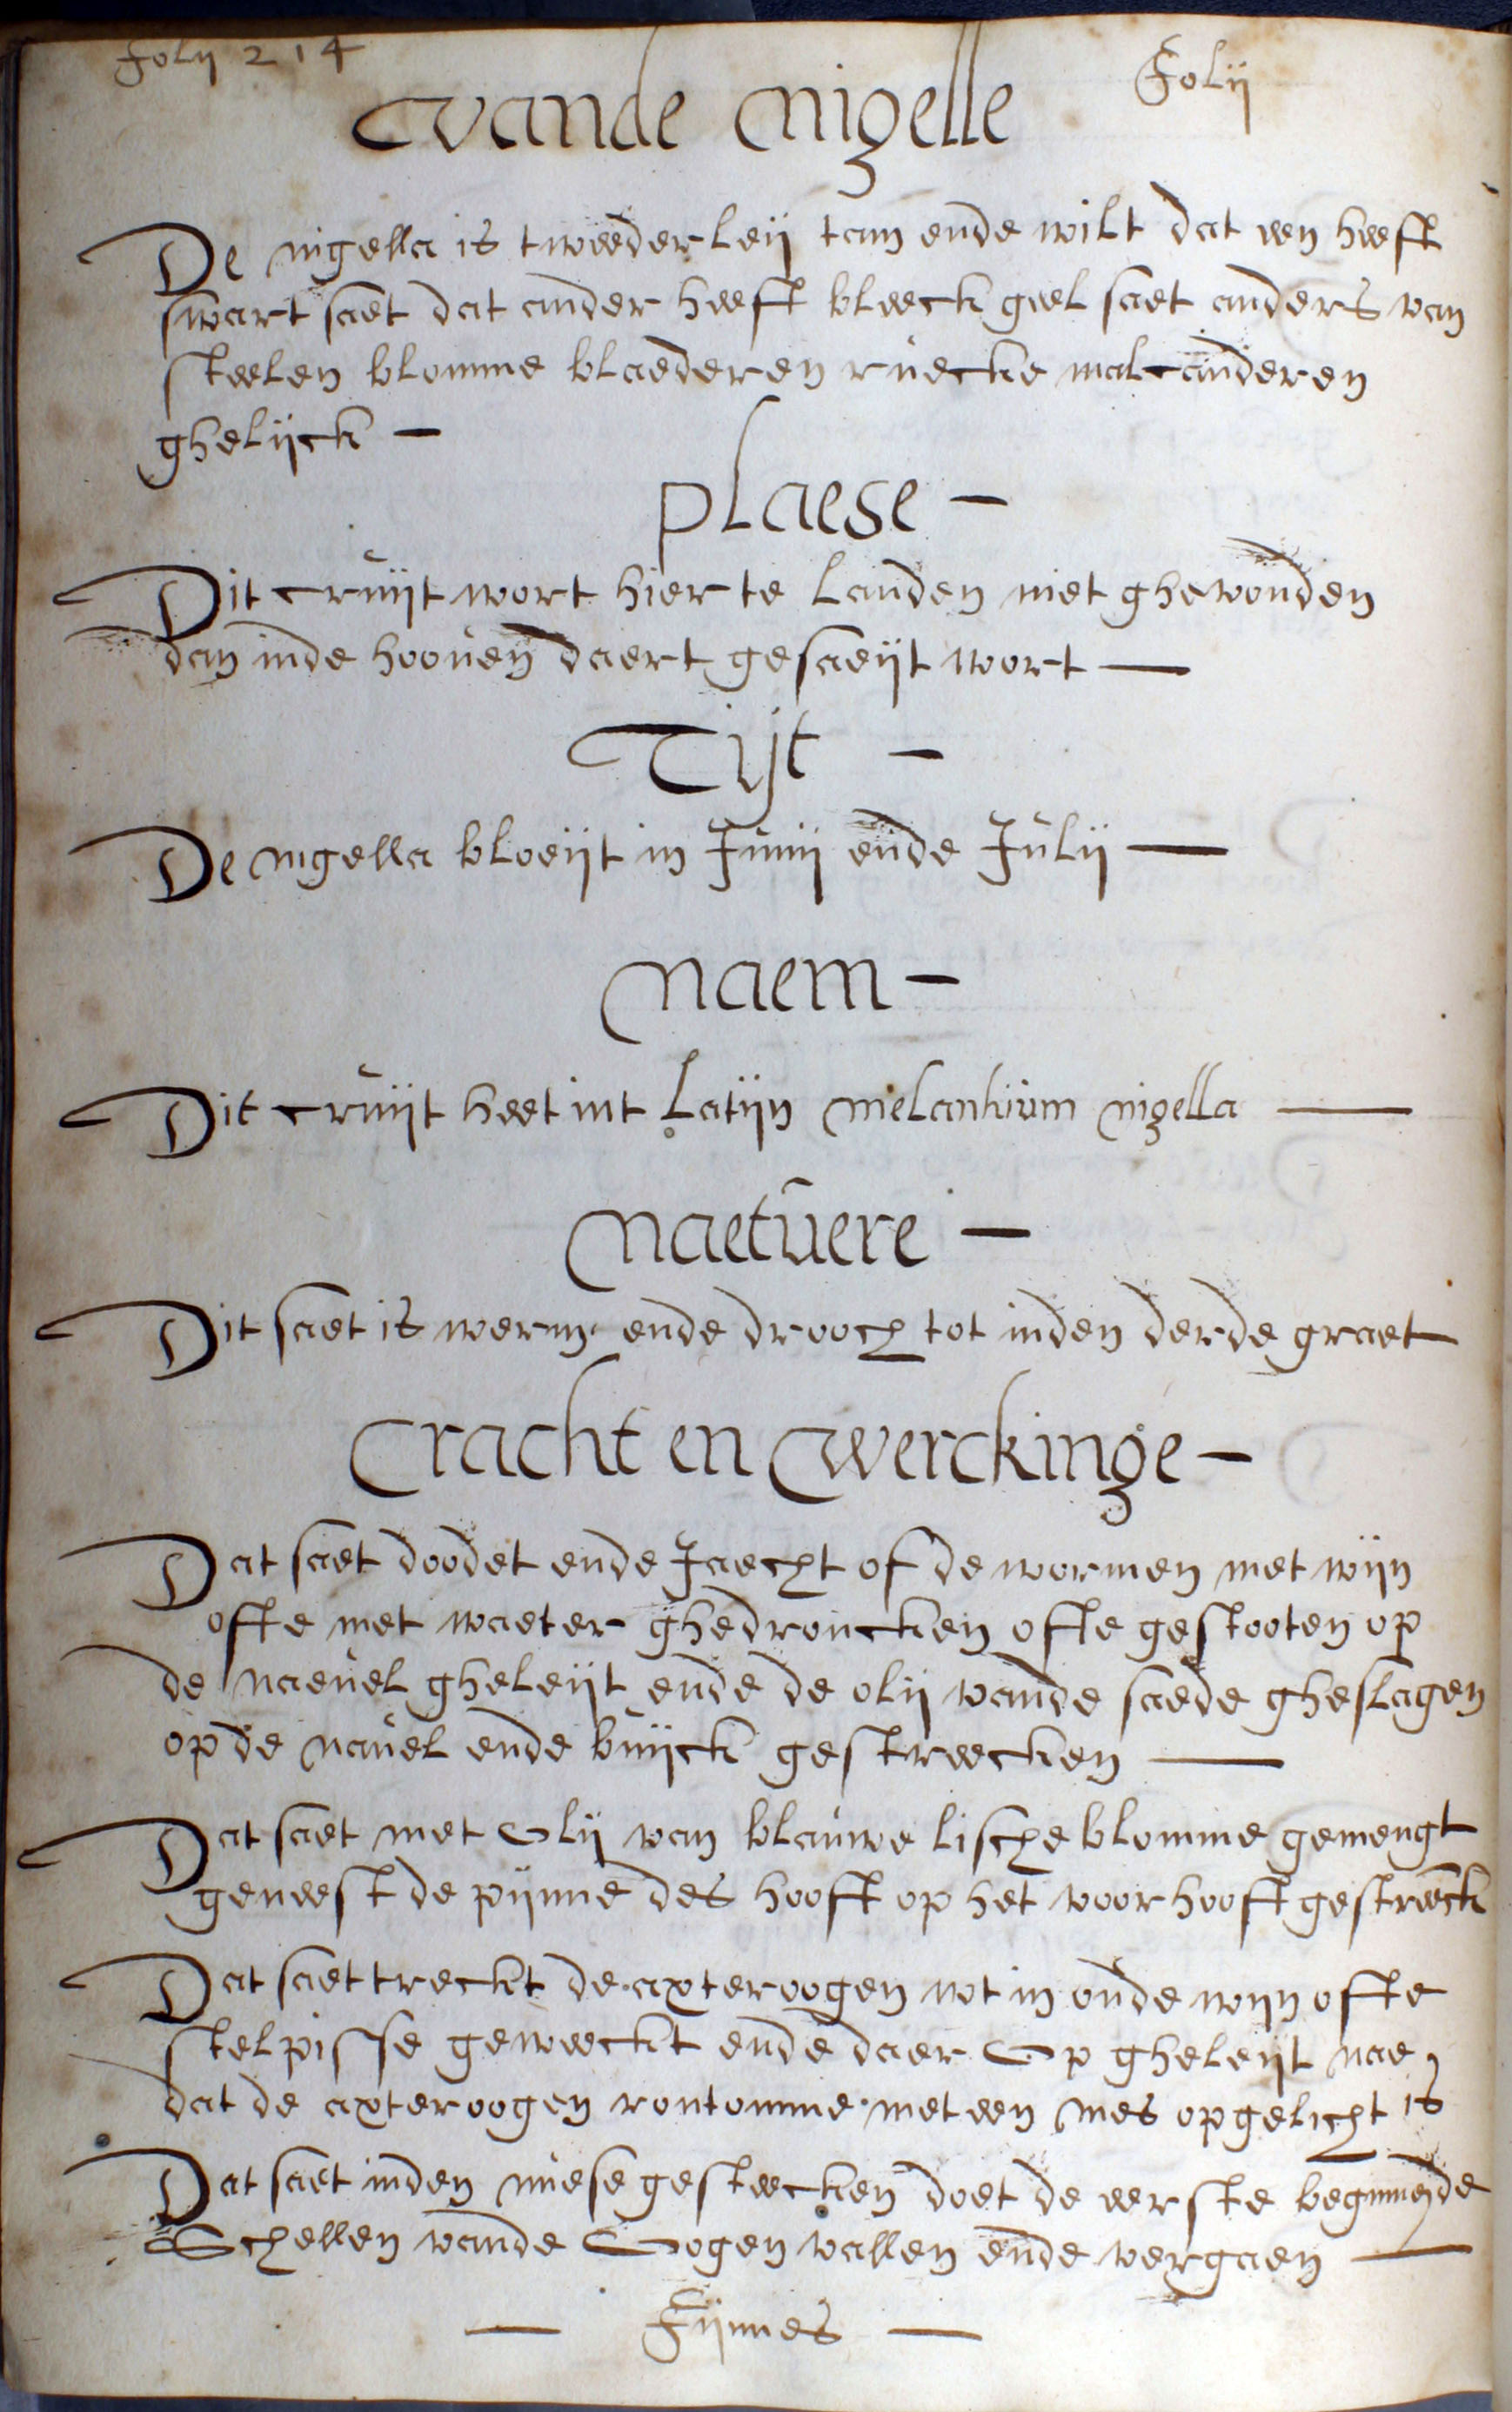 Folij 214
Folij
vande nigelle
De nigella is tweederleij tam ende wilt dat een heeft
swart saet dat ander heeft bleeck geel saet anders van
steelen blomme blaederen ruecke malcanderen
ghelijck —
plaese —
Dit cruijt wort hier te landen niet ghevonden
dan inde hooven daert gesaeijt wort —
Tijt —
De nigella bloeijt in Junij ende Julij —
naem —
Dit cruijt heet int Latijn melanhium nigella —
naetuere —
Dit saet is werm ende drooch tot inden derde graet
Cracht en werckinge —
Dat saet doodet ende Jaecht of de wormen met wijn
ofte met waeter ghedroncken ofte gestooten op
de naevel gheleijt ende de olij vande saede gheslagen
op de navel ende buijck gestreecken —
Dat saet met Olij van blauwe lische blomme gemengt
geneest de pijnne des hooft op het voorhooft gestreeck
Dat saet treckt de axteroogen wt in oude wijn ofte
stel pisse geweeckt ende daer Op gheleijt nae,
dat de axteroogen rontomme met een mes opgelicht is
Dat saet inden nuese gesteecken doet de eerste beginnende
Schellen vande Oogen vallen ende vergaen —
— Fijnnes —